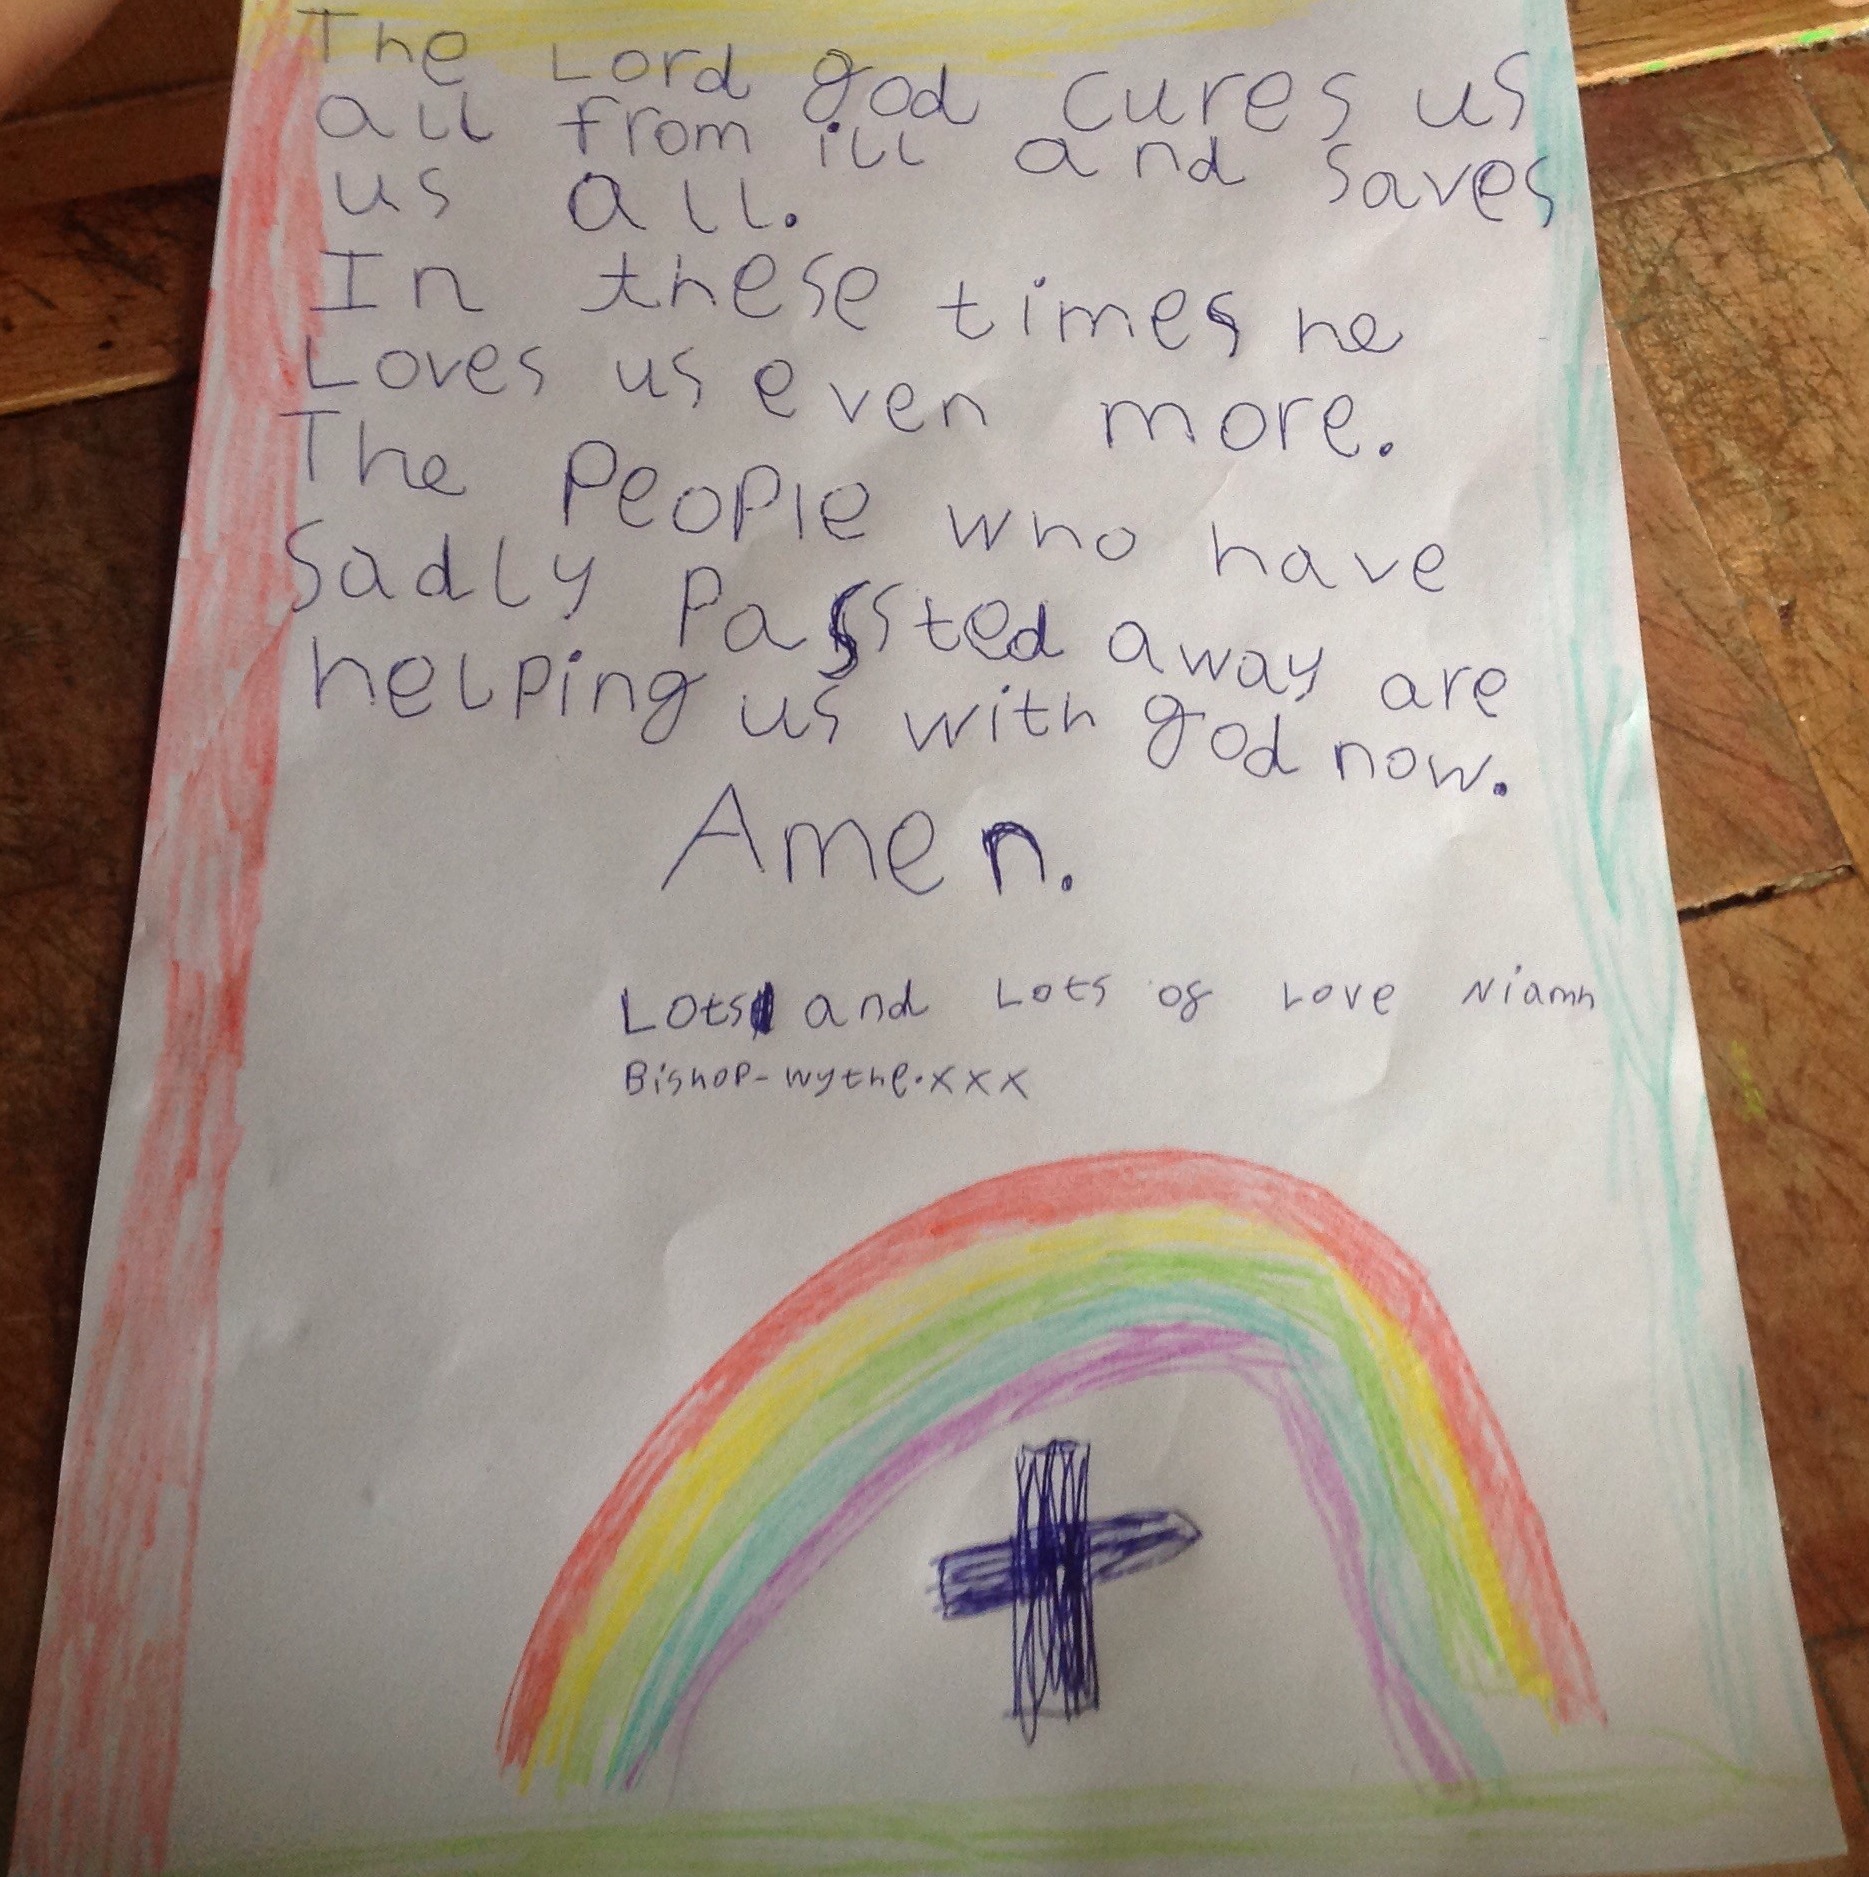 The Lord god cures us
all from ill and saves
us all.
In these times he
Loves us even more.
The People who have
Sadly Passted away are
helping us with god now.
Amen.
Lots and Lots of Love Niamh
Bishop-wythe.xxx